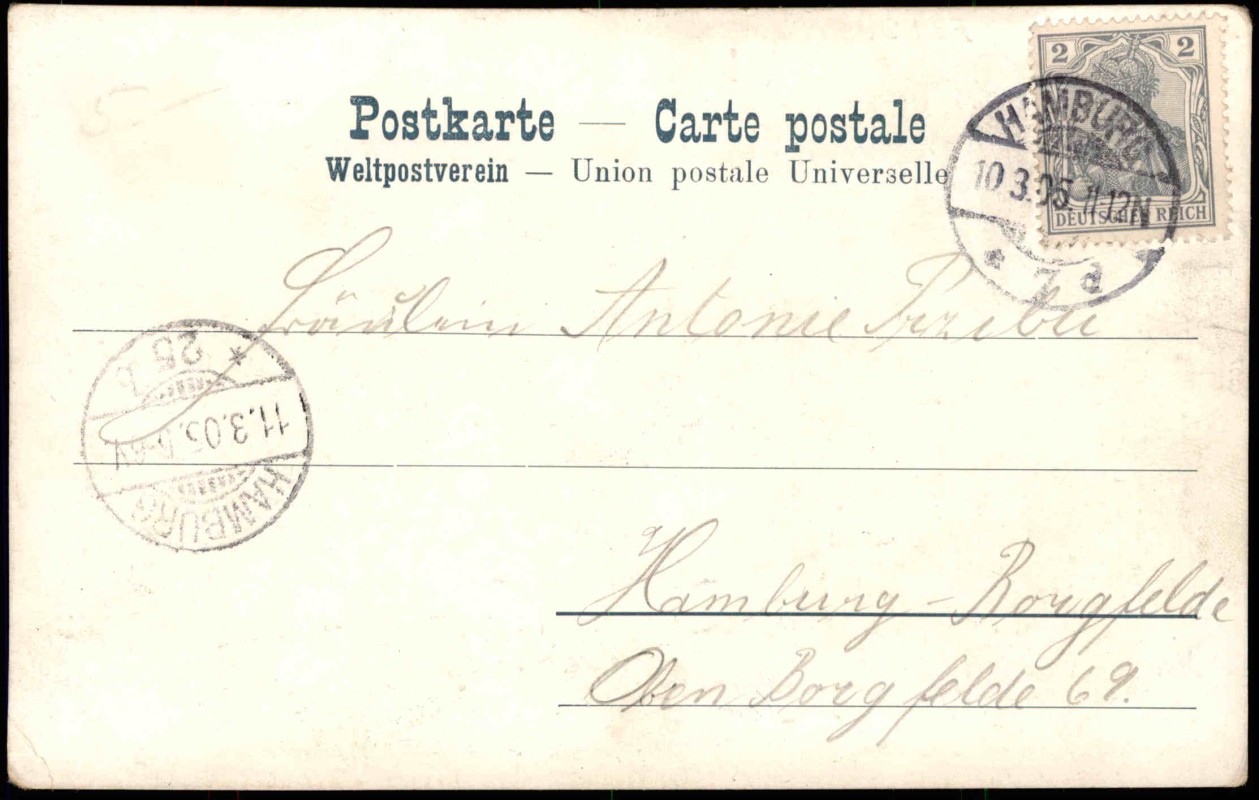 5
Postkarte — Carte postale
Weltpostverein — Union postale Universelle
2 2
DEUTSCHES REICH
HAMBURG
10.3.05. 11-12N
* 7 d *
Fräulein Antonie
* 25 b
11.3.05.
HAMBURG
Hamburg - Borgfelde
Oben Borgfelde 69.